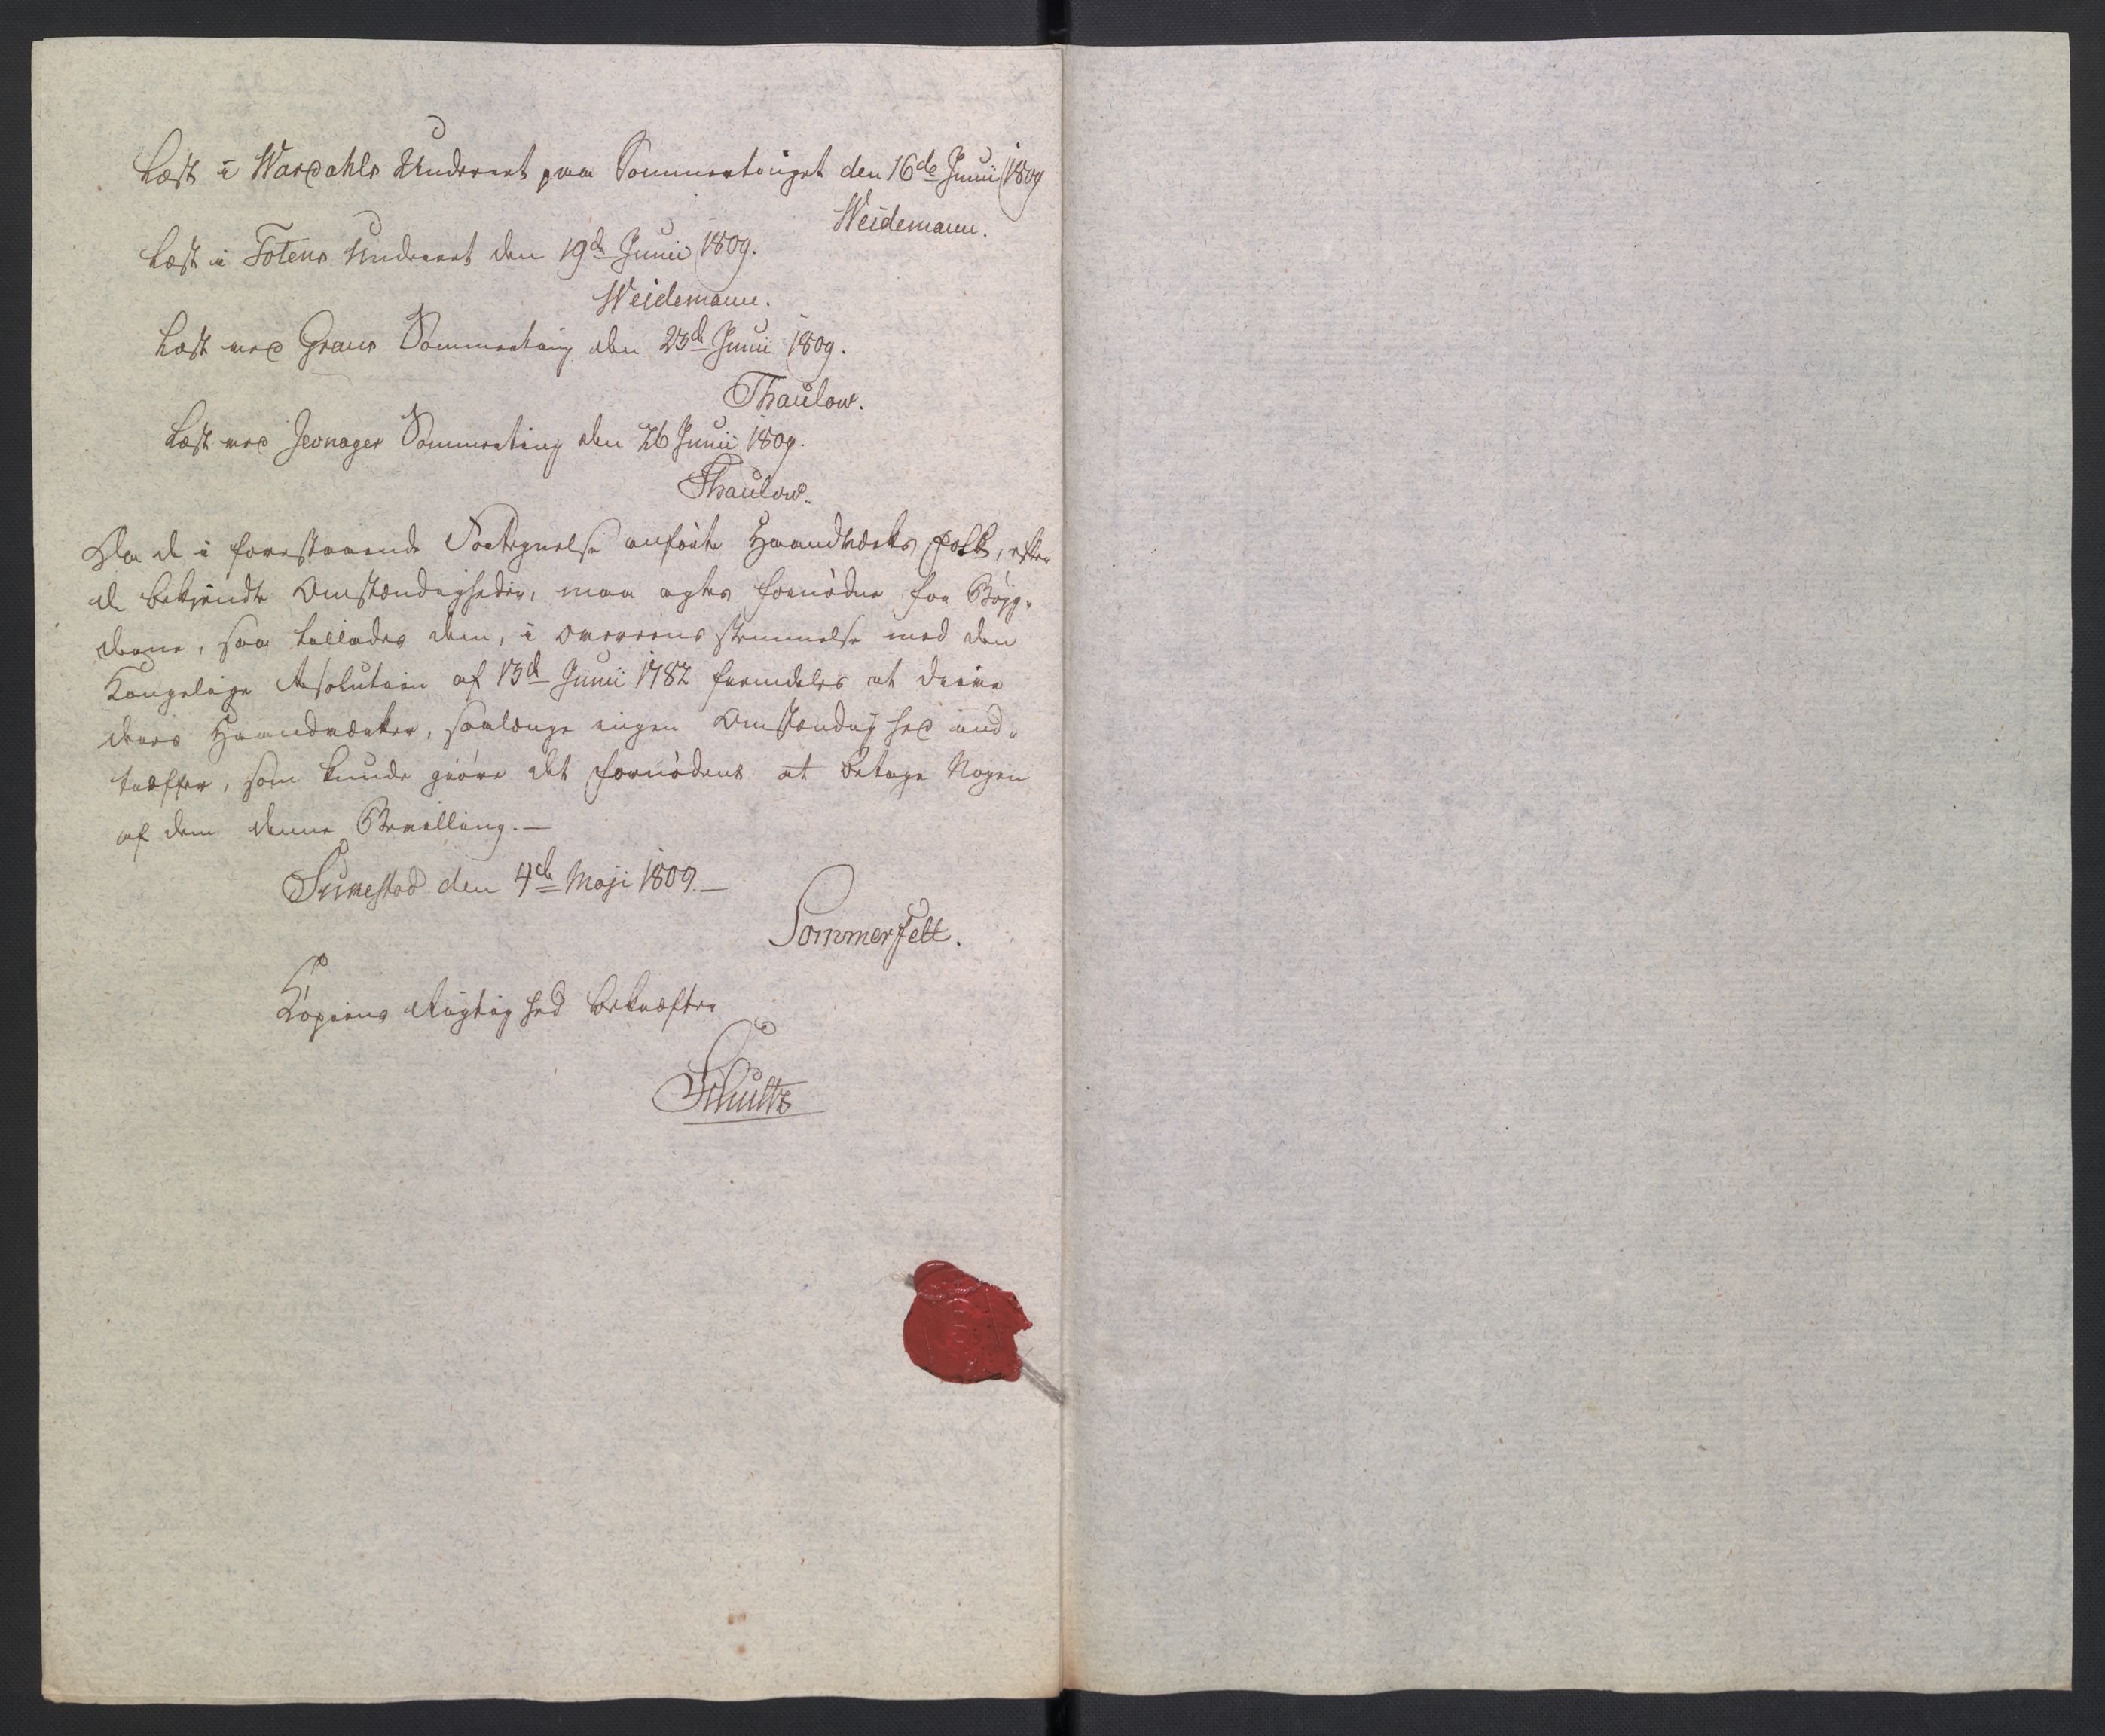 Læst i Wardahls Underret paa Sommertinget den 16de Junii 1809
Weidemann.
Læst i Totens Underret den 19de Junii 1809.
Weidemann.
Læst ved Grans Sommerting den 23de Junii 1809.
Thaulow.
Læst ved Jevnager Sommerting den 26 Junii 1809.
Thaulow.
Da de i forestaaende Fortegnelse anførte Haandværks Folk, efter
de bekjendte Omstændigheder, maa agtes fornødne for Bøjg-
derne, saa tillades dem, i Overeensstemmelse med den
Kongelige Resolution af 13de Junii 1782 fremdeles at drive
deres Haandværker, saalænge ingen Omstændighed ind-
træffer, som kunde giøre det fornødent at betage Nogen
af dem denne Bevilling.—
Sukkestad den 4de Maji 1809.—
Sommerfelt.
Copiens Rigtighed bekræfter
Schultz